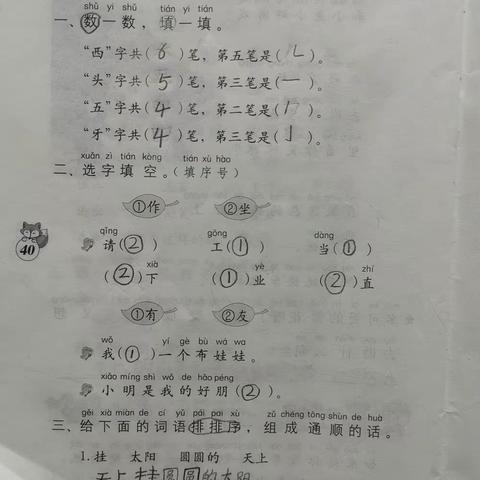 shǔ yi shǔ tián yi tián
一、数一数，填一填。
“西”字共(6)笔，第五笔是(乚)。
“头”字共(5)笔，第三笔是(一)。
“五”字共(4)笔，第二笔是(丨)。
“牙”字共(4)笔，第三笔是(亅)。
xuǎn zì tián kòng tián xù hào
二、选字填空。(填序号)
①作 ②坐
qǐng gōng dàng
请(②) 工(①) 当(①)
xià yè zhí
(②)下 (①)业 (②)直
40
①有 ②友
wǒ yí gè bù wá wa
我(①)一个布娃娃。
xiǎo míng shì wǒ de hǎo péng
小明是我的好朋(②)。
gěi xià miàn de cí yǔ pái pai xù zǔ chéng tōng shùn de huà
三、给下面的词语排排序，组成通顺的话。
1.挂 太阳 圆圆的 天上
天上挂圆圆的太阳